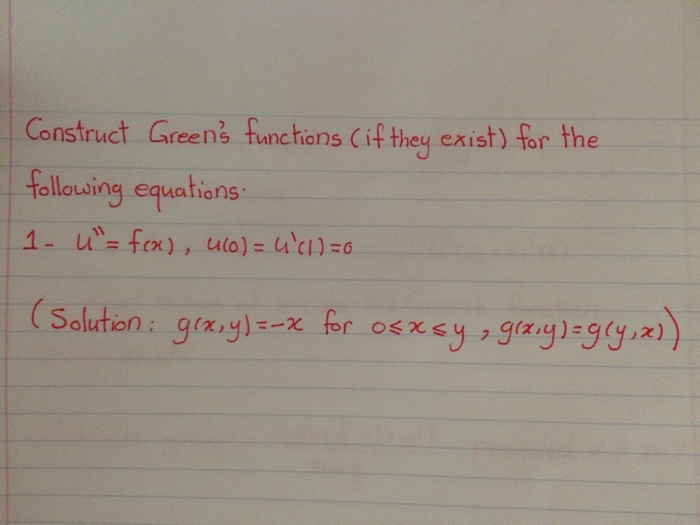 Construct Green's functions (if they exist) for the
following equations.
1- u'' = f(x), u(0) = u'(1) = 0
(Solution: g(x,y) = -x for 0≤x≤y, g(x,y) = g(y,x))